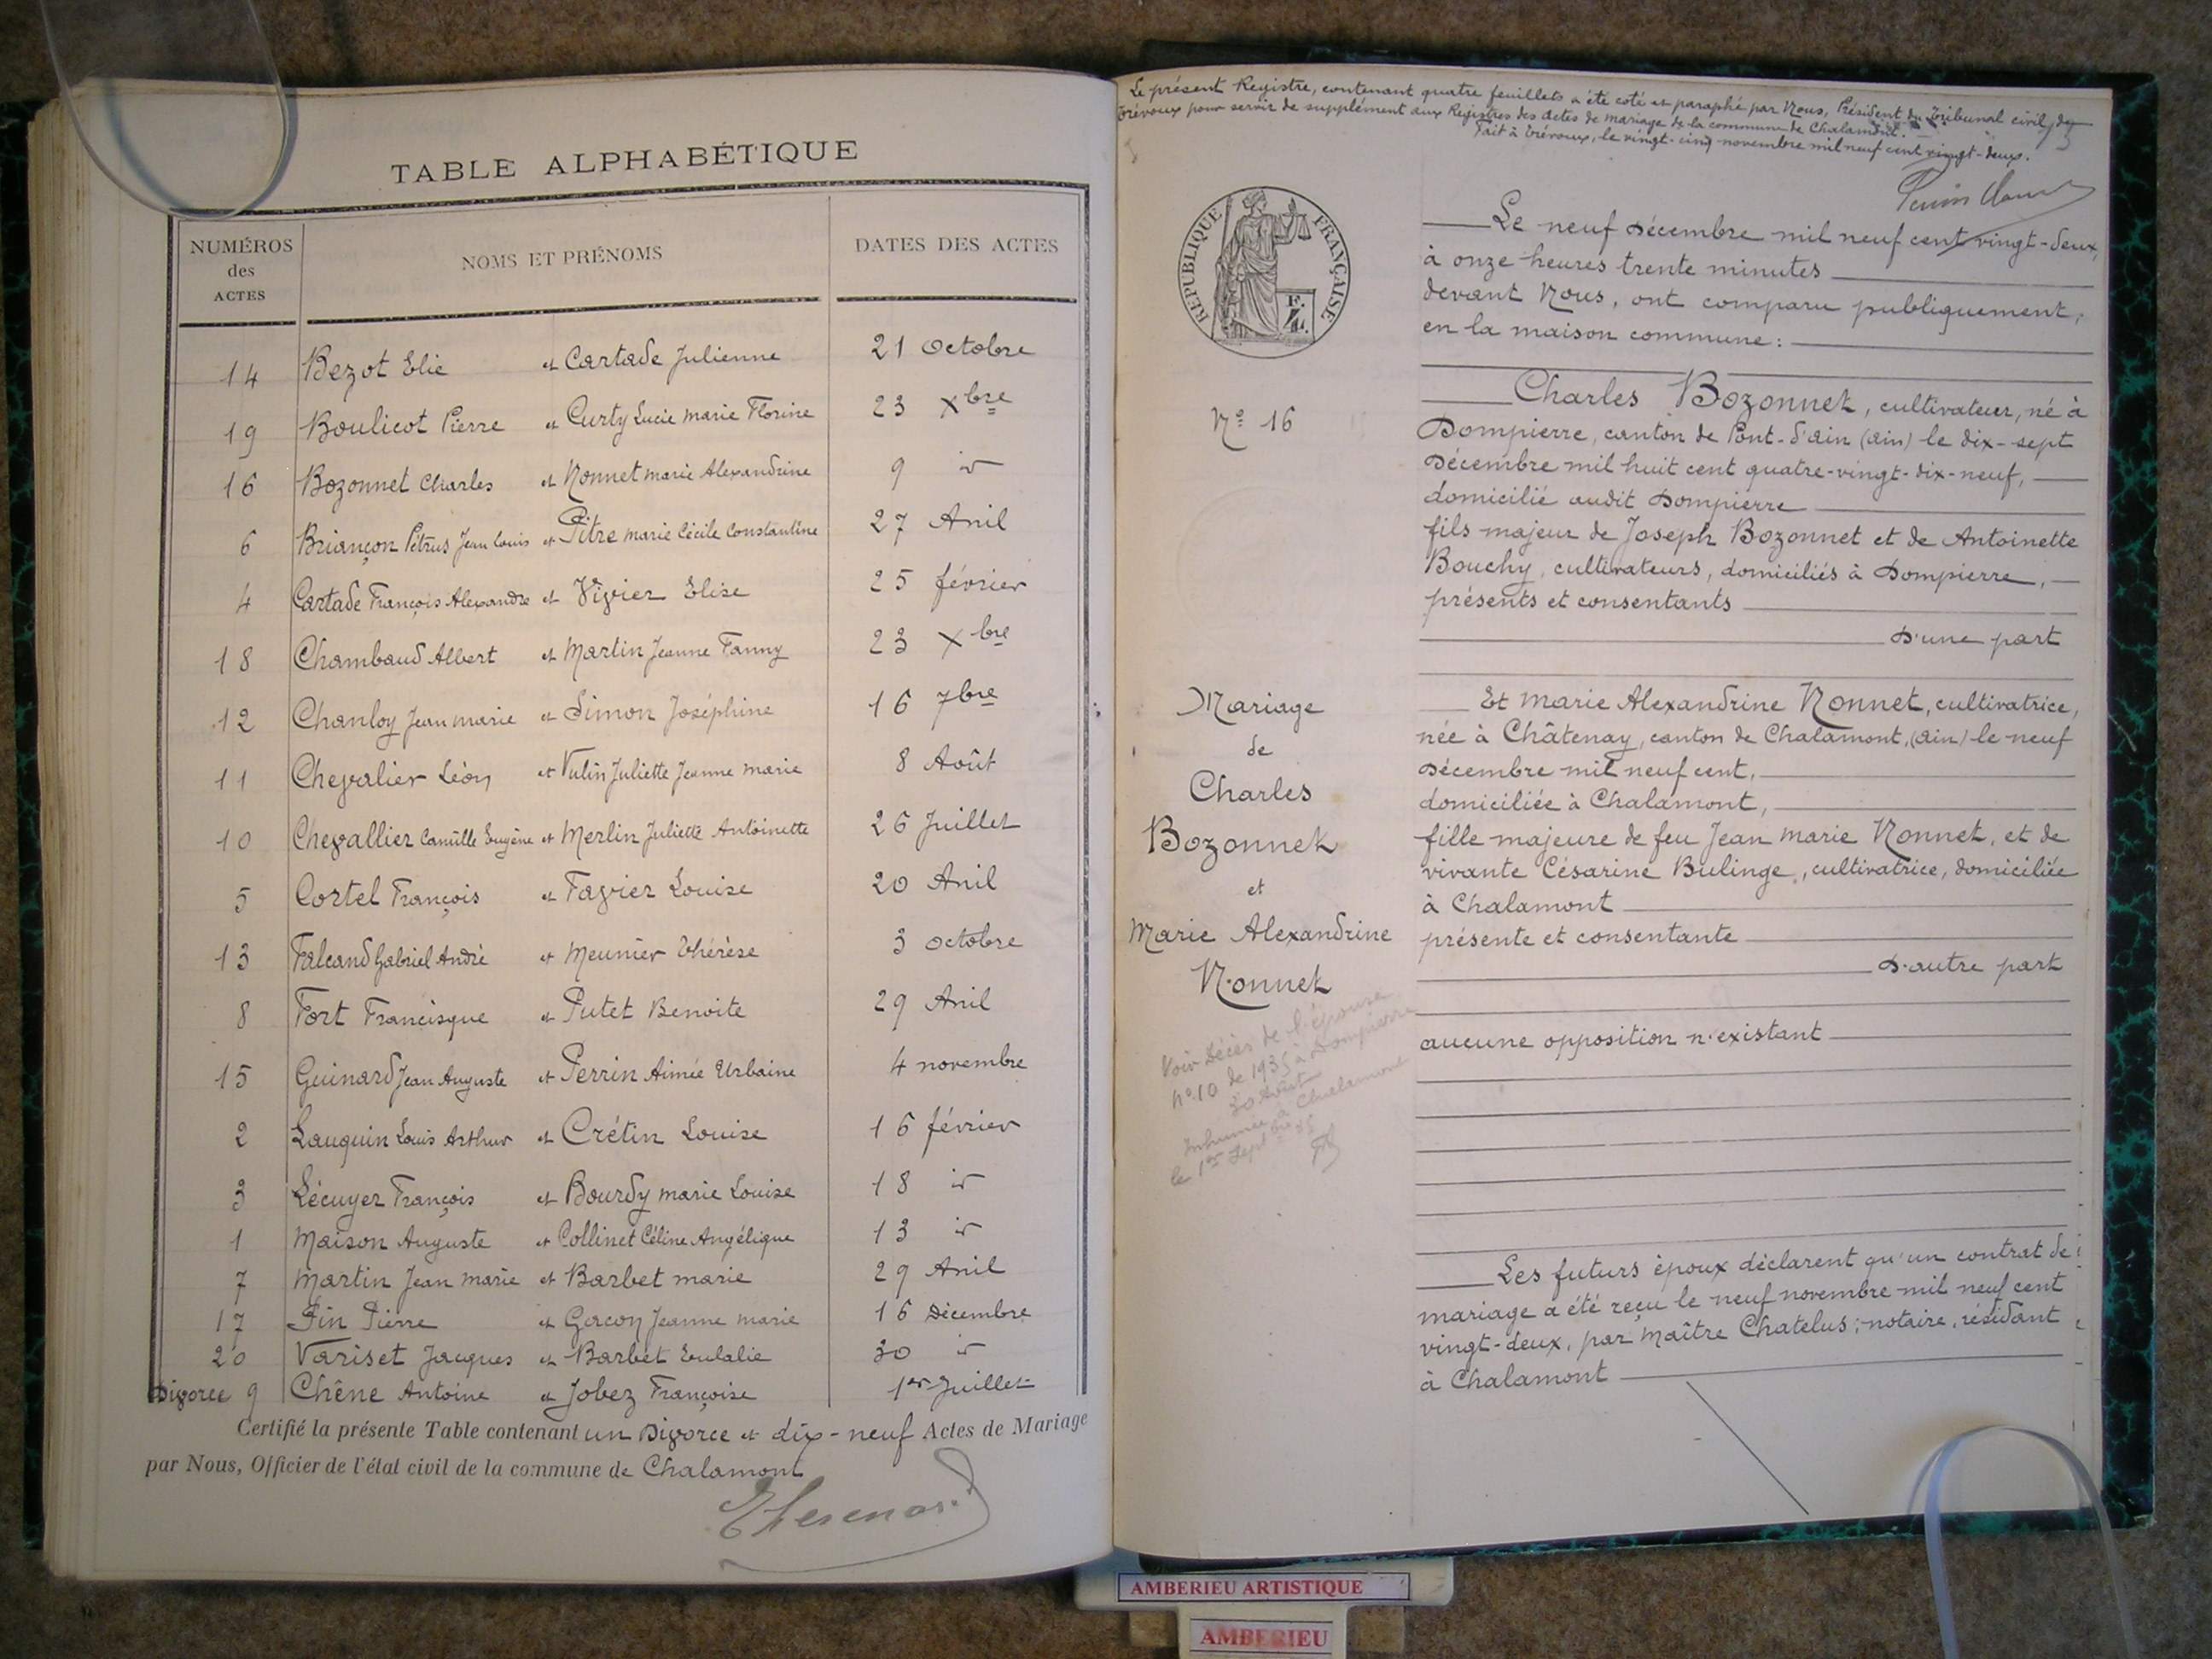 TABLE ALPHABÉTIQUE
NUMÉROS des ACTES NOMS ET PRÉNOMS DATES DES ACTES
14 Bezot Elie et Cartade Julienne 21 octobre
19 Boulicot Pierre et Curty Lucie marie Florine 23 Xbre
16 Bozonnet Charles et Nonnet marie Alexandrine 9 id
6 Briançon Pétrus Jean Louis et Pitre marie Cécile Constantine 27 Avril
4 Cartade François Alexandre et Vivier Elise 25 février
18 Chambaud Albert et Martin Jeanne Fanny 23 Xbre
12 Chanloy Jean marie et Simon Joséphine 16 7bre
11 Chevalier Léon et Vulin Juliette Jeanne marie 8 Août
10 Chevallier Camille Eugène et Merlin Juliette Antoinette 26 Juillet
5 Cortel François et Favier Louise 20 Avril
13 Falcand Gabriel André et Meunier Thérèse 3 octobre
8 Fort Francisque et Putet Benoite 29 Avril
15 Guinard Jean Auguste et Perrin Aimée Urbaine 4 novembre
2 Lauquin Louis Arthur et Crétin Louise 16 février
3 Lécuyer François et Bourdy marie Louise 18 id
1 Maison Auguste et Collinet Céline Angélique 13 id
7 Martin Jean marie et Barbet marie 29 Avril
17 Pin Pierre et Gacon Jeanne marie 16 Décembre
20 Variset Jacques et Barbet Eulalie 30 id
Divorce 9 Chêne Antoine et Jobez Françoise 1er Juillet
Certifié la présente Table contenant un Divorce et dix-neuf Actes de Mariage
par Nous, Officier de l'état civil de la commune de Chalamont
Le présent Registre, contenant quatre feuillets a été coté et paraphé par Nous, Président du Tribunal civil de
Trévoux pour servir de supplément aux Registres des actes de mariage de la commune de Chalamont.
Fait à Trévoux, le vingt-cinq novembre mil neuf cent vingt-deux.
RÉPUBLIQUE FRANÇAISE
Nº 16
Mariage
de
Charles
Bozonnet
et
Marie Alexandrine
Nonnet
Voir décès de l'épouse
nº 10 de 1935 à Dompierre
30 Août
Inhumée à Chalamont
le 1er Sept 35
Le neuf Décembre mil neuf cent vingt-deux,
à onze heures trente minutes
devant Nous, ont comparu publiquement,
en la maison commune :
Charles Bozonnet, cultivateur, né à
Dompierre, canton de Pont-d'ain (ain) le dix-sept
Décembre mil huit cent quatre-vingt-dix-neuf,
domicilié audit Dompierre
fils majeur de Joseph Bozonnet et de Antoinette
Bouchy, cultivateurs, domiciliés à Dompierre,
présents et consentants
D'une part
Et marie Alexandrine Nonnet, cultivatrice,
née à Châtenay, canton de Chalamont, (ain) le neuf
Décembre mil neuf cent,
domiciliée à Chalamont,
fille majeure de feu Jean marie Nonnet, et de
vivante Césarine Bulinge, cultivatrice, domiciliée
à Chalamont
présente et consentante
D'autre part
aucune opposition n'existant
Les futurs époux déclarent qu'un contrat de
mariage a été reçu le neuf novembre mil neuf cent
vingt-deux, par maître Chatelus, notaire, résidant
à Chalamont
AMBERIEU ARTISTIQUE
AMBERIEU